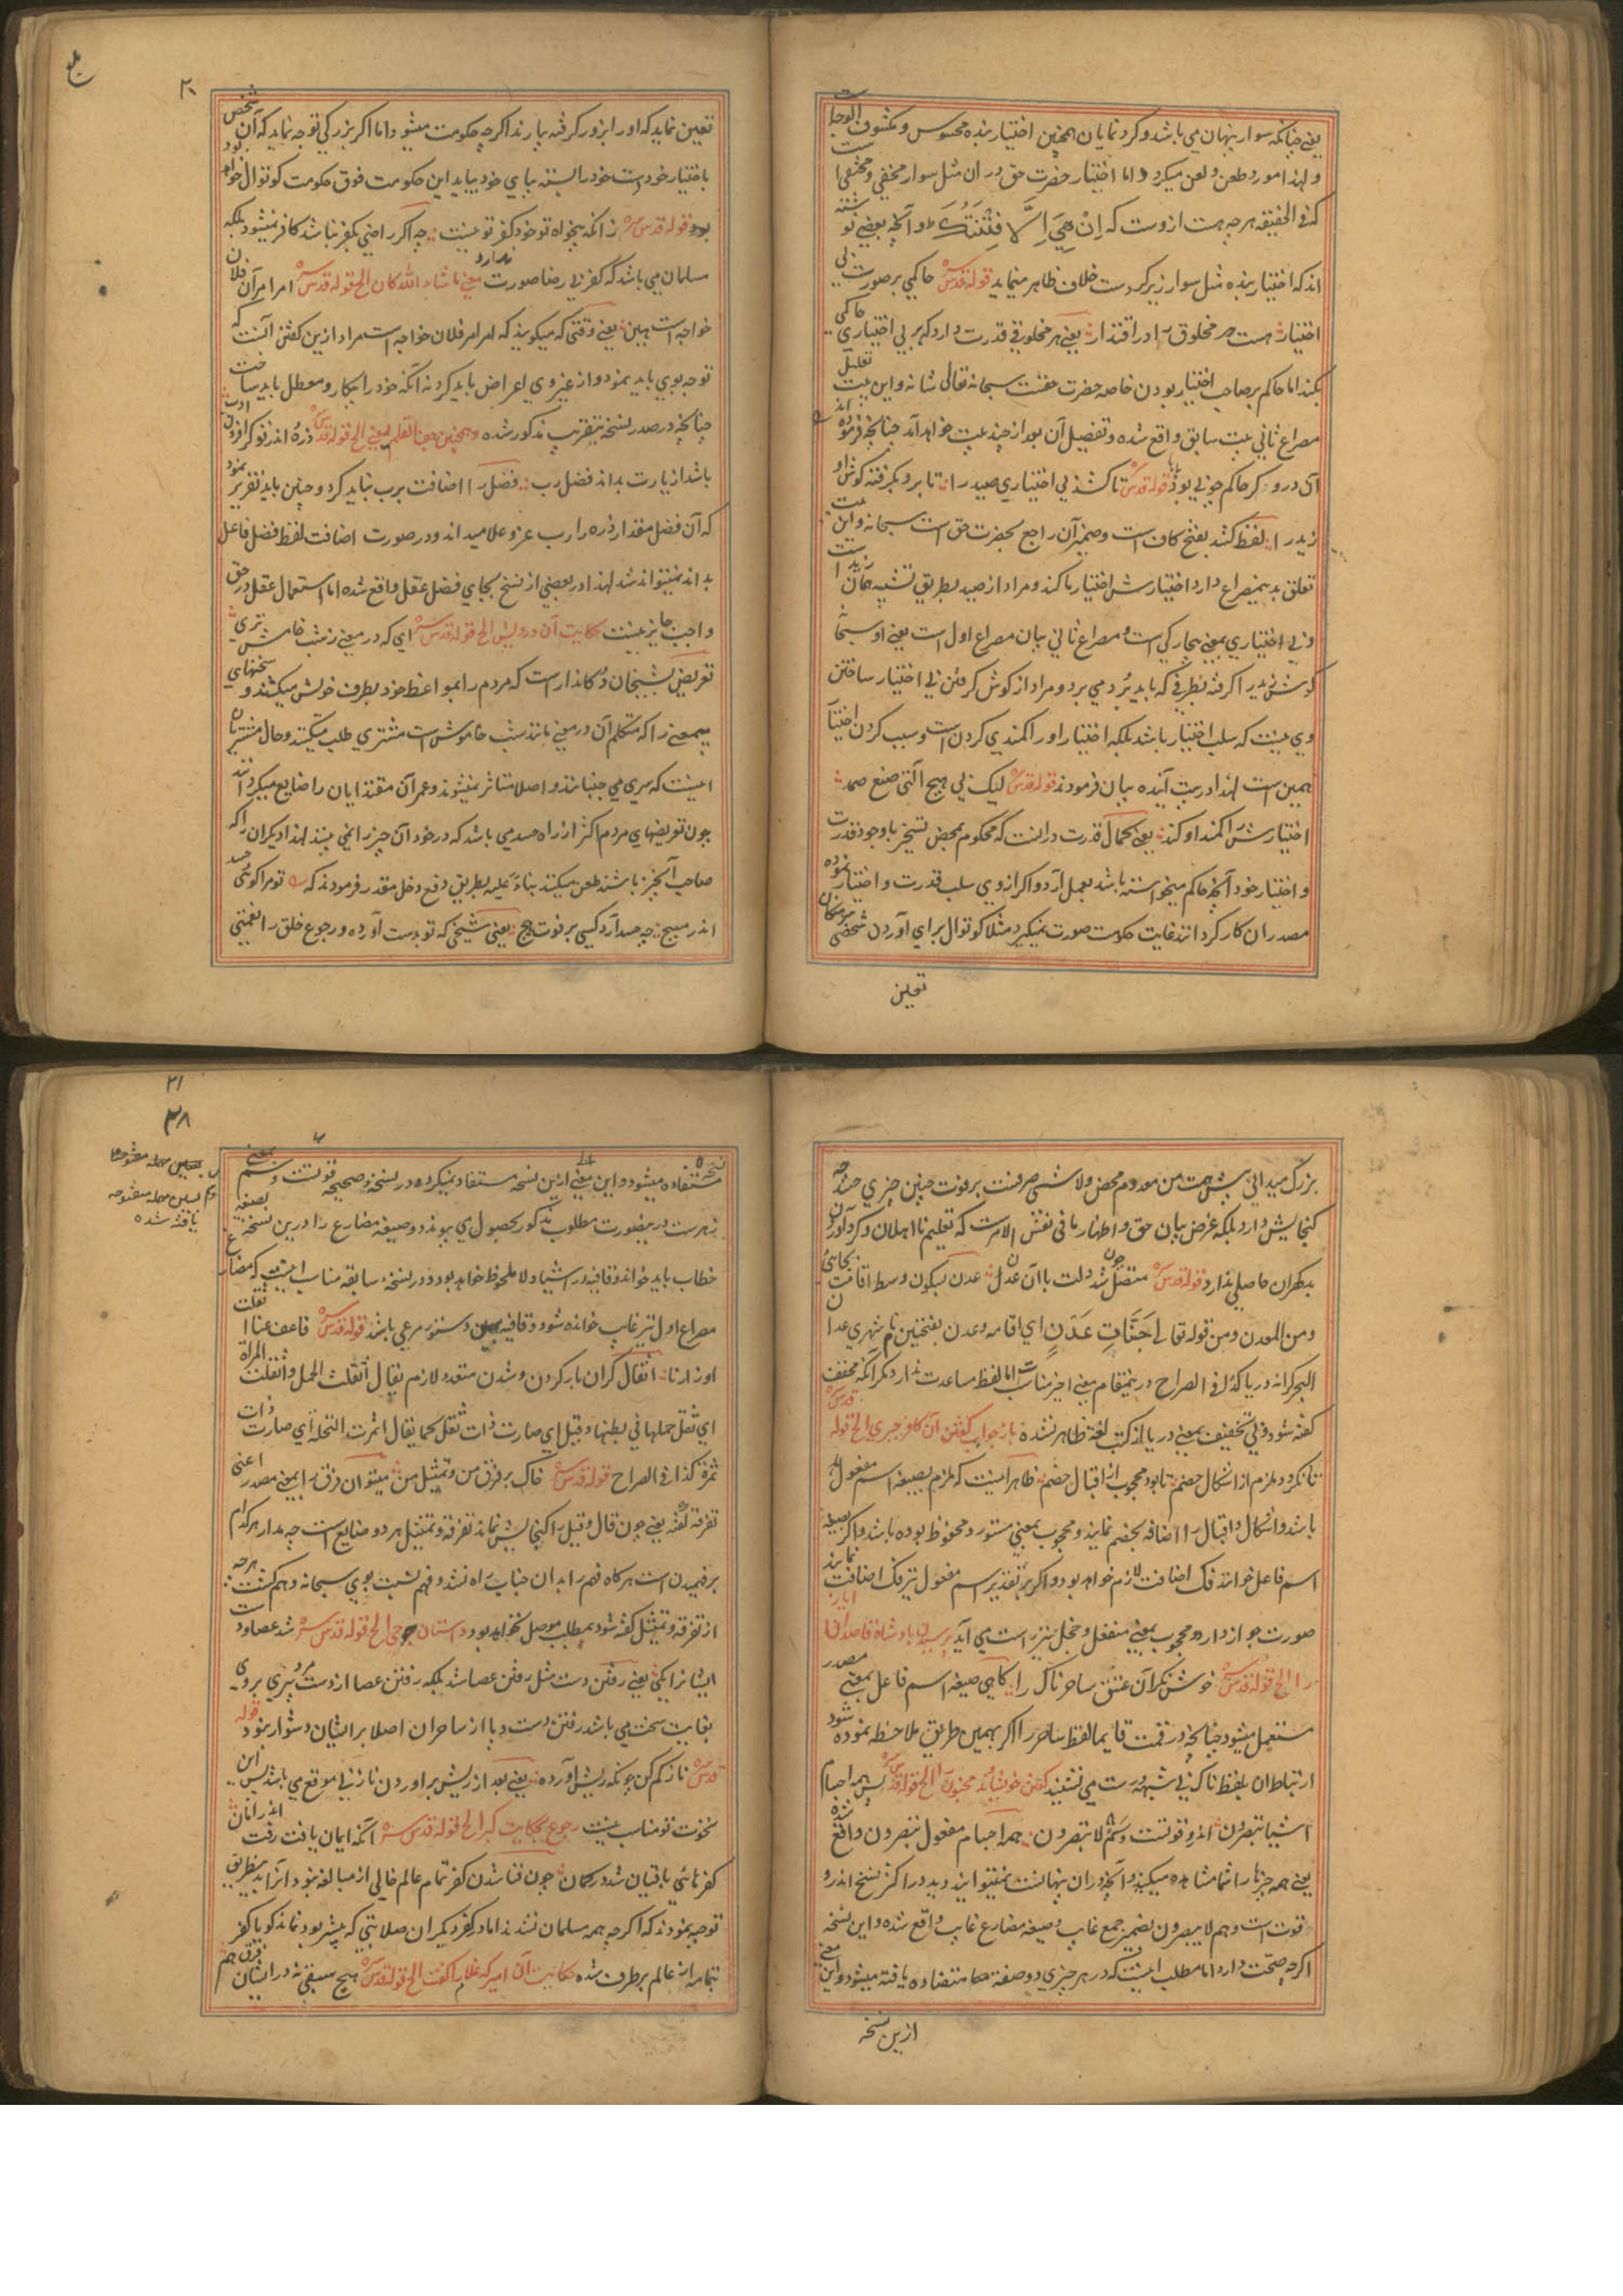 یعنی چنانکه سوار پنهان می باشد و کرد نمایان همچنین اختیار بنده محسوس و مکشوف
و لهذا مورد طعن و لعن میکردد و اما اختیار حضرت حق در ان مثل سوار مخفی و مختفی است
که فی الحقیقه هرچه هست ازوست که اِنْ هِیَ اِلَّا فِتْنَتُکَ و آنچه بعضی نوشته
اند که اختیار بنده مثل سوار زیر کردست خلاف ظاهر مینماید قوله قدس سره حاکمی بر صورت بی
اختیار هست هر مخلوق را در اقتدار یعنی هر مخلوقی قدرت دارد که بر بی اختیاری حاکمی
بکند اما حاکم بر صاحب اختیار بودن خاصه حضرت حقست سبحانه تعالی شانه و این بیت تعلیل
مصراع ثانی بیت سابق واقع شده و تفصیل آن بعد از چند بیت خواهد آمد چنانچه فرموده اند
آن دروکر حاکم چوبی بود قوله قدس سره تا کشد بی اختیاری صید را تا برد بکرفته کوش او
زید را لفظ کشد بفتح کاف است و ضمیر آن راجع بحضرت حق است سبحانه و این بیت
تعلق بدین مصراع دارد اختیارش اختیار ما کند و مراد از صید بطریق تشبیه همان زید است
و بی اختیاری بمعنی بیچارکی است و مصراع ثانی بیان مصراع اول است یعنی او سبحانه
کوش زید را کرفته بطرفی که باید بُرد می برد و مراد از کوش کرفتن بی اختیار ساختن
وی نیست که سلب اختیار باشد بلکه اختیار او را کمندی کردن است و سبب کردن اختیار
همین است لهذا در بیت آینده بیان فرمودند قوله قدس سره لیک بی هیچ آلتی صنع صمد
اختیارش را کمند او کند یعنی کمال قدرت در آنست که محکوم بمحض تسخیر باوجود قدرت
و اختیار خود آنچه حاکم میخواسته باشد بعمل آرد و اکر از وی سلب قدرت و اختیار نموده
مصدر ان کار کردانند غایت حکومت صورت نمیکیرد مثلا کوتوال برای آوردن شخصی
تعین
۲۰
تعین نماید که او را بزور کرفته بیارند اکرچه حکومت میشود اما اکر بزرکی توجه نماید که آن شخص
باختیار خود دست خود را بسته بپای خود بیاید این حکومت فوق حکومت کوتوال خواهد
بود قوله قدس سره زانکه بیخواه تو خود کفر تو نیست چه اکر راضی بکفر نباشد کافر نمیشود بلکه
مسلمان می باشد که کفر بی رضا صورت ندارد معنی ماشاء الله کان الخ قوله قدس سره امر امر آن فلان
خواجه است هین یعنی وقتی که میکویند که امر امر فلان خواجه است مراد ازین کفتن آنست که
توجه بوی باید نمود و از غیر وی اعراض باید کرد نه آنکه خود را بیکار و معطل باید ساخت
چنانچه در صدر نسخه بتقریب مذکور شده و همچنین جف القلم یعنی الخ قوله قدس سره ذره اندر تو کر افزون ادب
باشد از یارت بداند فضل رب فضل را اضافت برب نباید کرد و چنین باید تقریر نمود
که آن فضل مقدار ذره را رب عز و علا میداند و در صورت اضافت لفظ فضل فاعل
بداند نمیتواند شد لهذا در بعضی از نسخ بجای فضل عقل واقع شده اما استعمال عقل در حق
واجب جایز نیست حکایت آن درویش الخ قوله قدس سره ای که در معنی ز شب خامش تری
تعریض بشیخان دکاندار است که مردم را بمواعظ خود بطرف خویش میکشند و سخنهای
بیمعنی را که متکلم آن در معنی مانند شب خاموش است مشتری طلب میکنند و حال مشتریان
اینست که سری می جنبانند و اصلا متاثر نمیشوند و عمر آن مقتدایان را ضایع میکردانند
چون تعریضهای مردم اکثر از راه حسد می باشد که در خود آن چیز را نمی بینند لهذا دیکران را که
صاحب آنچیز باشند طعن میکنند بناءً علیه بطریق دفع دخل مقدر فرمودند که تو مرا کوئی حسد
اندر مبیچ چه حسد آرد کسی بر فوت هیچ یعنی شیخی که تو بدست آورده و رجوع خلق را نعمتی
بزرک میدانی پیش همت من معدوم محض و لاشی صرفست بر فوت چنین چیزی حسد چه
کنجایش دارد بلکه غرض بیان حق و اظهار ما فی نفس الامرست که تعلیم نااهلان و کرد آوردن
بدکهران حاصلی ندارد قوله قدس سره متصل چون شد دلت با آن عدن عدن بسکون وسط اقامت بجائی
و من المعدن و من قوله تعالی جَنَّاتِ عَدْنٍ ای اقامه و عدن بفتحتین نام شهری عدان
البحر کرانه دریا کذا فی الصراح درینمقام معنی اخیر مناسب است اما لفظ مساعدت ندارد مکر آنکه مخفف
کفته شود و بی تخفیف بمعنی دریا از کتب لغة ظاهر نشده باز جواب کفتن آن کافر جبری الخ قوله قدس سره
تا نکردد ملزم از اشکال خصم تا بود محجوب از اقبال خصم ظاهر اینست که ملزم بصیغه اسم مفعول
باشد و اشکال و اقبال را اضافه بخصم نمایند و محجوب بمعنی مستور و محفوظ بوده باشد و اکر بصیغه
اسم فاعل خوانند فک اضافت لازم خواهد بود و اکر بر تقدیر اسم مفعول نیز فک اضافت نمایند
صورت جواز دارد و محجوب بمعنی منفعل و خجل نیز راست می آید پرسیدن پادشاه قاصدا ایاز
را الخ قوله قدس سره خوش نکر آن عشق ساحرناک را کاهی صیغه اسم فاعل بمعنی مصدر
مستعمل میشود چنانچه در قمت قایما لفظ ساحر را اکر بهمین طریق ملاحظه نموده شود
ارتباط ان بلفظ ناک بی شبهه درست می نشیند کفتن خویشاوند مجنون الخ قوله قدس سره پس همه اجسام
اشیا تبصرون اندر و قوتست و سم لا تبصرون همه اجسام مفعول تبصرون واقع شده
یعنی همه چیزها را شما مشاهده میکنید و آنچه در ان پنهانست نمیتوانید دید در اکثر نسخ اندرو
قوت است و هم لا یبصرون بضمیر جمع غایب و صیغه مضارع غایب واقع شده و این نسخه
اکرچه صحت دارد اما مطلب اینست که در هر چیزی دو صفت متضاده یافته میشود و این معنی
ازین نسخه
۲۱
۳۸
مستفاده میشود و این معنی ازین نسخه مستفاد نمیکردد در نسخه صحیحه قوتست و سم بمعنی
زهرست درینصورت مطلوب مذکور بحصول می پیوندد و صیغه مضارع را درین نسخه بصیغه
خطاب باید خواند و قافیه در اشیا و لا ملحوظ خواهد بود و در نسخه سابقه مناسب اینست که مضارع
مصراع اول نیز غایب خوانده شود و قافیه بین دستور مرعی باشد قوله قدس سره فاعف عنا اثقلت
اوزارنا اثقال کران بار کردن و شدن متعد و لازم یقال اثقلت الحمل و اثقلت المراة
ای ثقل حملها فی بطنها و قیل ای صارت ذات ثقل کما یقال اثمرت النخلة ای صارت ذات
ثمرة کذا فی الصراح قوله قدس سره خاک بر فرق من و تمثیل من میتوان فرق را بمعنی مصدر اعنی
تفرقه کفته یعنی چون قال و قیل را کنجایش نماند تفرقه و تمثیل هر دو ضایع است چه مدار هرکدام
بر فهمیدن است هرکاه فهم را بدان جناب راه نشد و فهم نسبت بوی سبحانه وهم کشت هرچه
از تفرقه و تمثیل کفته شود بمطلب موصل نخواهد بود داستان جوحی الخ قوله قدس سره شد عصا و دست
ایشانرا یکی یعنی رفتن دست مثل رفتن عصا شد بلکه رفتن عصا از دست مرد پیری بروی
بغایت سخت می باشد رفتن دست و پا از ساحران اصلا بر ایشان دشوار نبود قوله
قدس سره ناز کم کن چونکه ریش آورده یعنی بعد از ریش براوردن ناز بی موقع می باشد پس این
نخوت تو مناسب نیست رجوع بحکایت کبر الخ قوله قدس سره آنکه ایمان یافت رفت اندر امان
کفرهای باقیان شد در کمان چون فنا شدن کفر تمام عالم خالی از مبالغه نبود آنرا بدینطریق
توجیه نمودند که اکرچه همه مسلمان نشدند اما در کفر دیکران صلابتی که پیشتر بود نماند کویا کفر
بتمامه از عالم برطرف شده حکایت آن امیر که غلام را کفت الخ قوله قدس سره هیچ سبقی نه در ایشان فرق هم
بسین مهمله مفتوحه
یافته شده